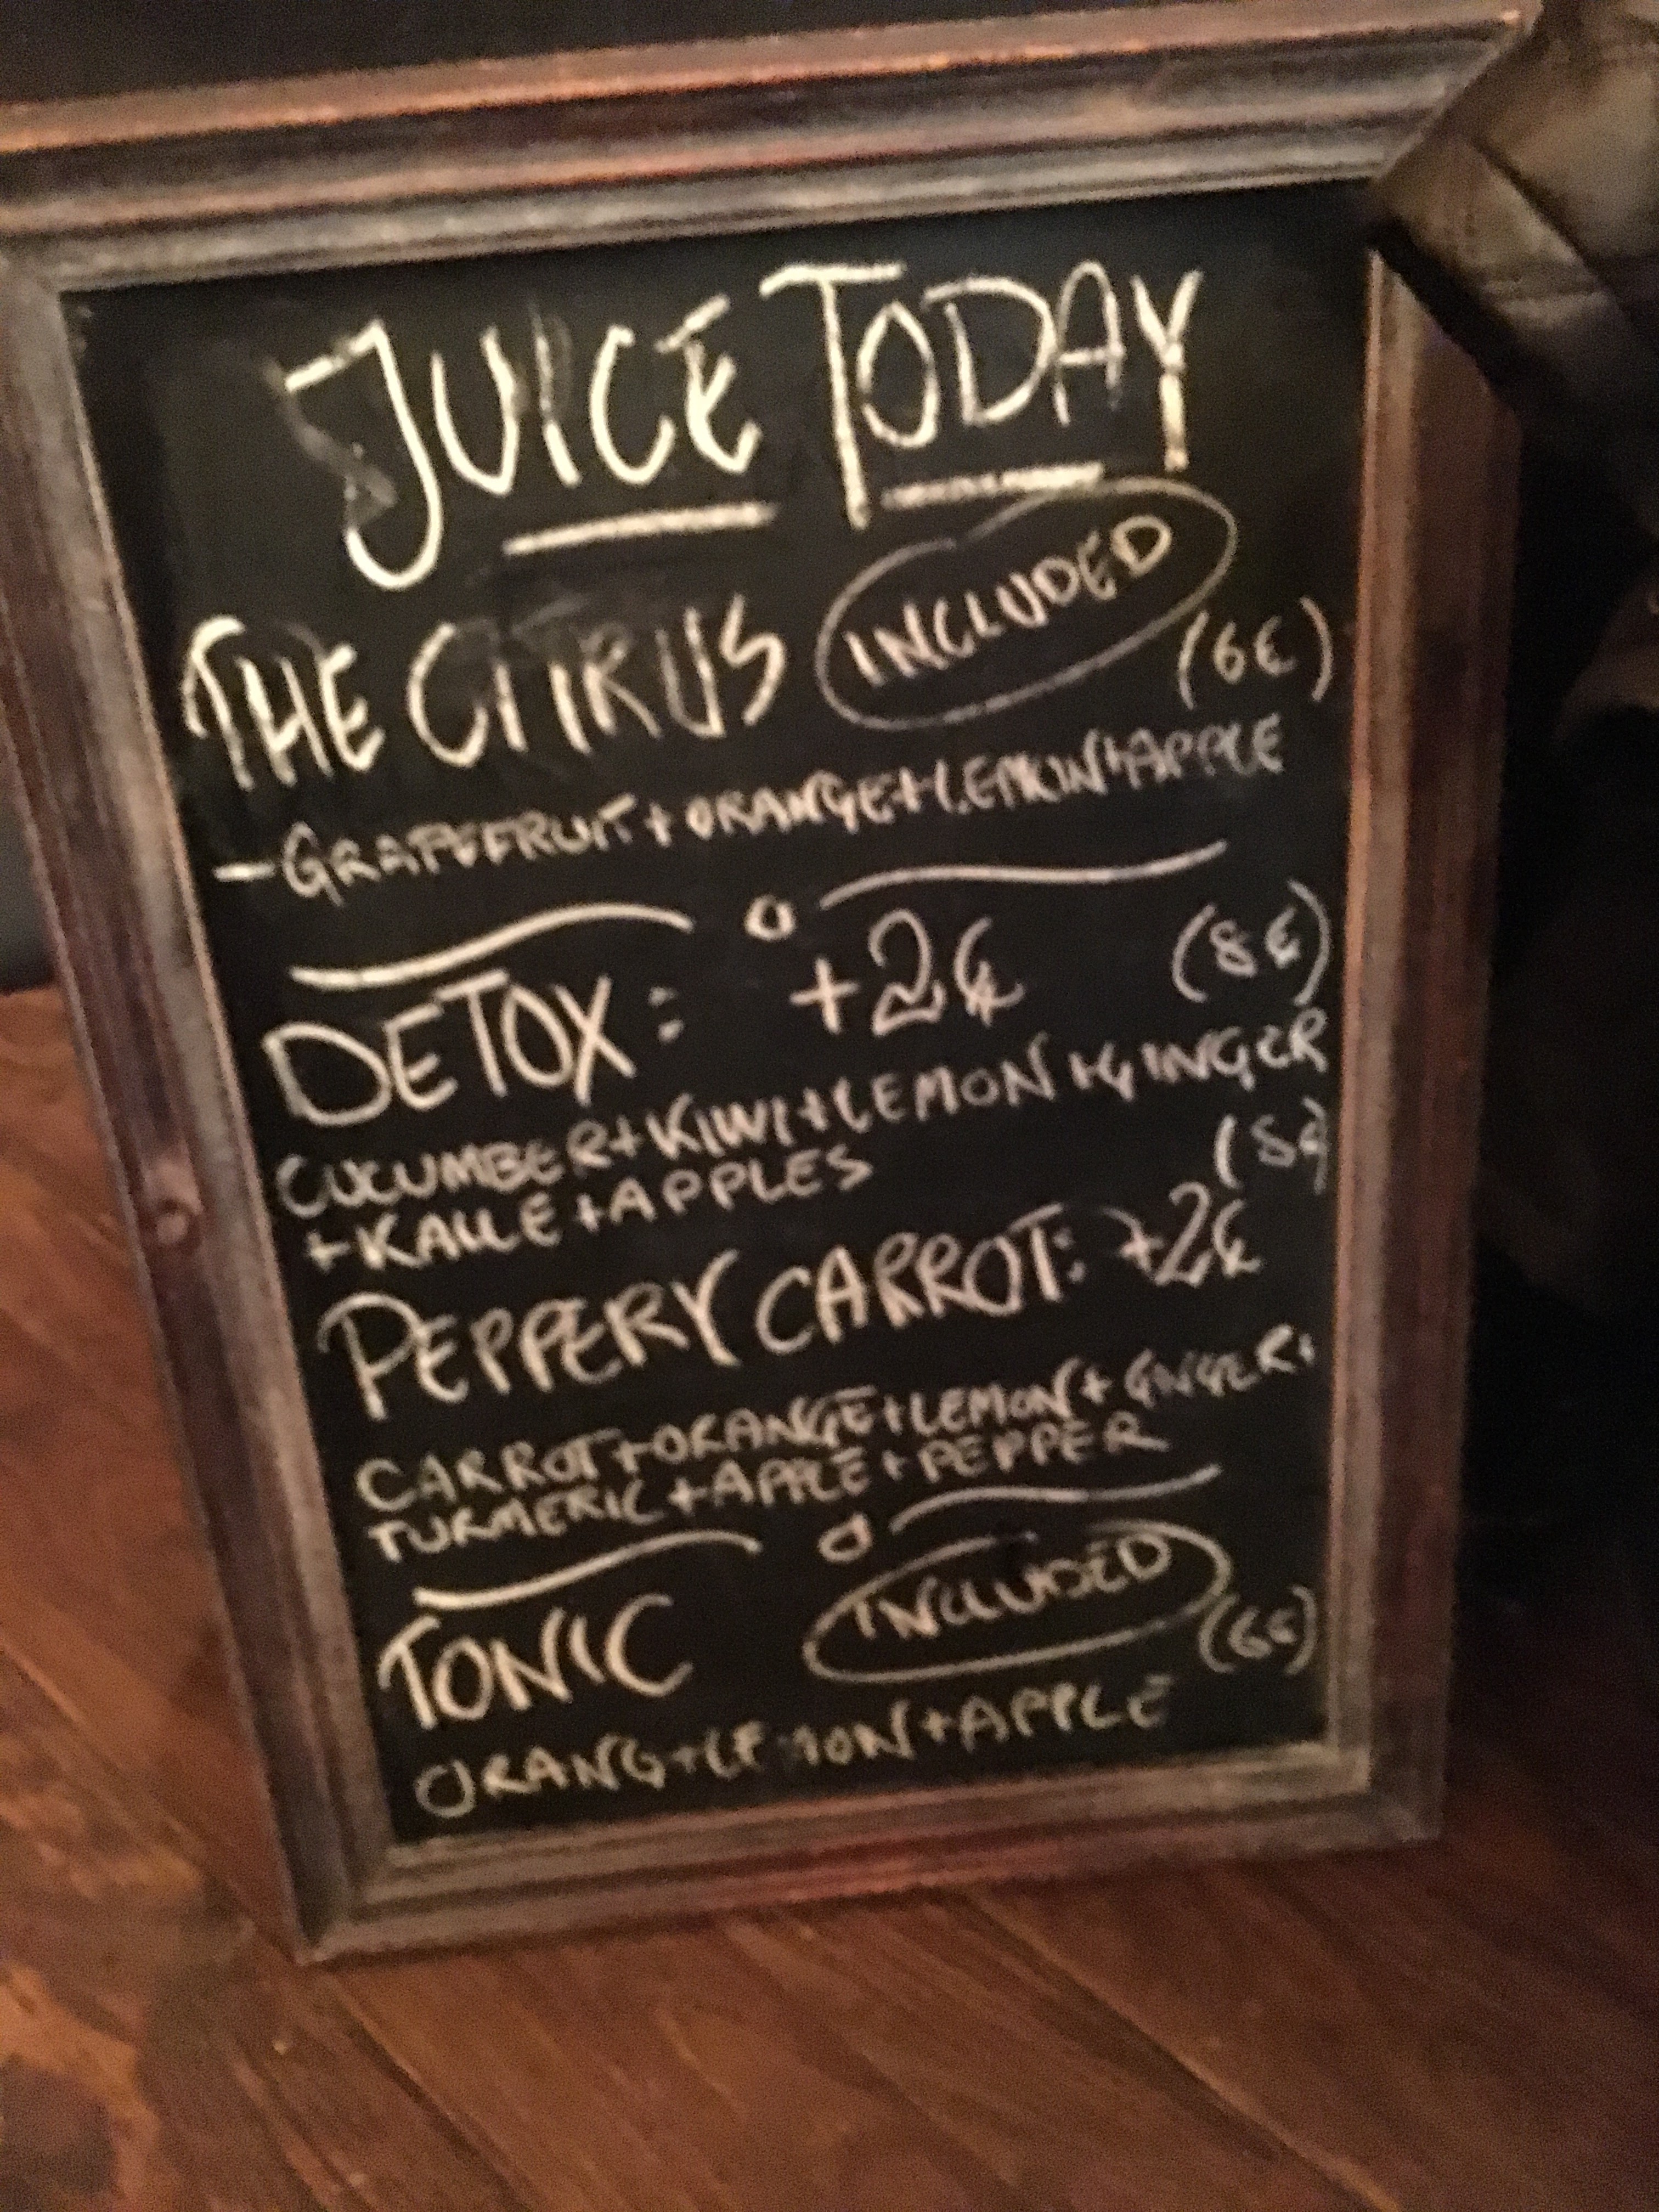 JUICE TODAY
THE CITRUS INCLUDED (6€)
- GRAPEFRUIT + ORANGE + LEMON + APPLE
DETOX: +2€ (8€)
CUCUMBER + KIWI + LEMON + GINGER
+ KALLE + APPLES (8€)
PEPPERY CARROT: +2€
CARROT + ORANGE + LEMON + GINGER +
TURMERIC + APPLE + PEPPER
TONIC INCLUDED (6€)
ORANG + LEMON + APPLE